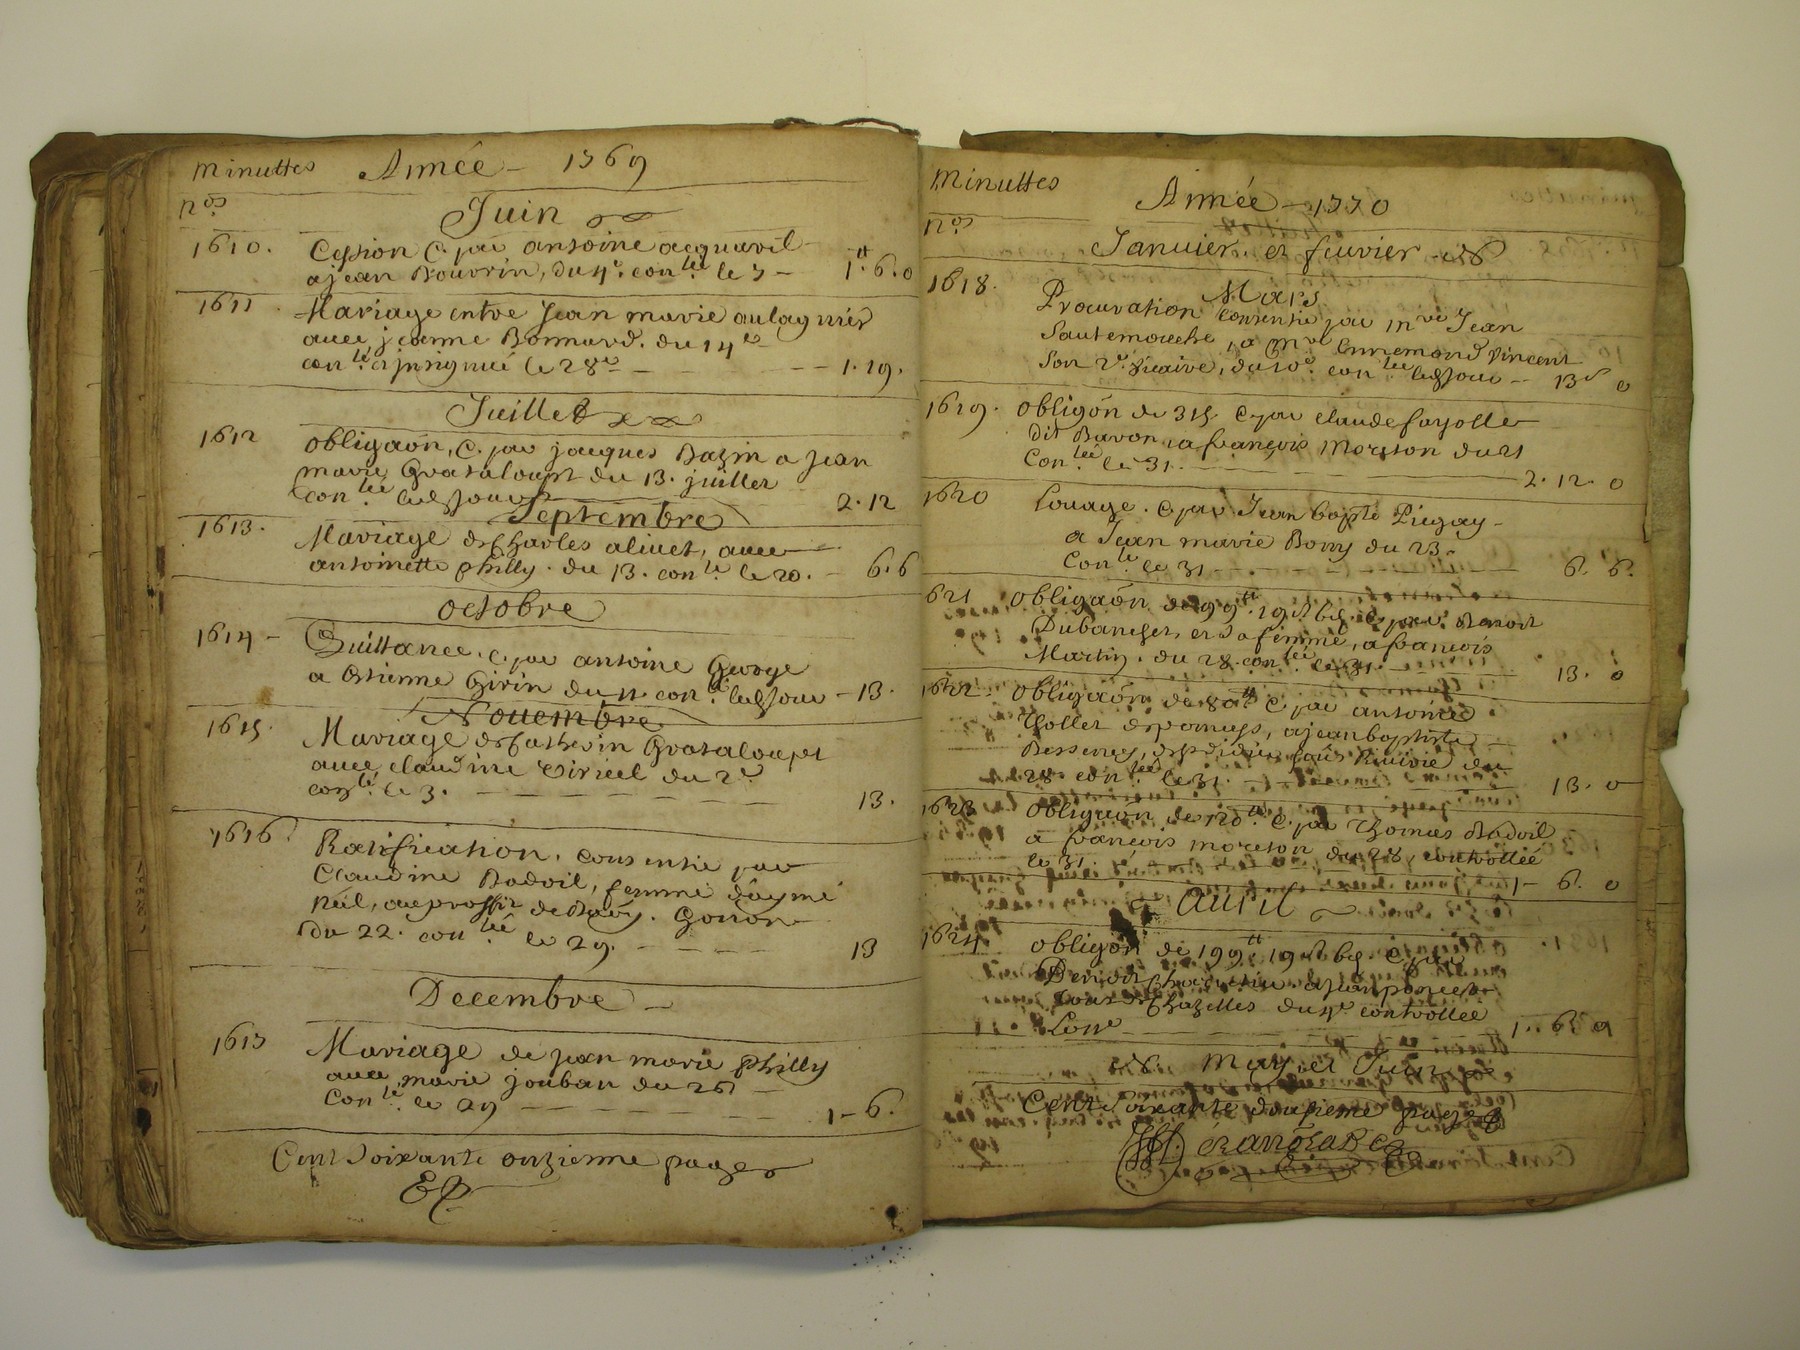 Minuttes Année - 1769
nos
Juin
1610. Cession C. par antoine acquavil
a jean Bouvrin, du 4e. conlée le 7 - 1tt. 6. 0
1611. Mariage entre Jean marie aulagnier
avec jeanne Bonnard. du 14e
conlé et insignué le 28e - 1. 19.
Juillet
1612 obligaôn, C. par jacques Bazin a jean
marie Grataloupt du 13. juillet
conlée ledjour 2. 12
Septembre
1613. Mariage de Charles alivet, avec
antoinette philly. du 13. conlé le 20. - 6. 6
octobre
1614 - Quittance. C. par antoine George
a Etienne Girin du 11 conlé. ledjour - 13.
Novembre
1615. Mariage de Catherin Grataloupt
avec claudine Viricel du 2e
conlé. le 3. 13.
1616. Ratification. consentie par
Claudine Badoil, femme d'aymé
Néel, au proffit de Gonon
Du 22. conlée le 29. 13
Decembre
1617 Mariage de jean marie philly
avec marie jouban du 26
Conlé. le 29 1 - 6.
Cent Soixante onzieme page
Minuttes
Année - 1770
nos
Janvier. et fevrier
Mars
1618. Procuration consentie par mre Jean
Sautemouche, a mre Ennemond Vincent
Son Vicaire, du 10e conlée ledjour - 13s 0
1619. obligôn de 315 C. par claude fayolle
dit Baron, a françois Moreton du 21
Conlée le 31. 2. 12. 0
1620 Louage. C. par Jean bapte Piegay -
a Jean marie Bony du 23.
Conlé. le 31 6. 6.
1621 obligaôn de 99tt. 19s C. par Benoit
Dubanchet, et sa femme, a francois
Martin. du 28. conlée le 31. 13. 0
1622 obligaôn de 80tt C. par antoine
Thollet de pomeys, a jean baptiste
Bessenay, du
28 conlée le 31. 13. 0
1623 obligaôn de 120tt. C. par Thomas Badoil
a françois moreton du 28, controllée
le 31. 1 - 6. 0
avril
1624 obligôn de 199tt. 19s C. par
Benoit a
de Chazelles du 4e controllée
Lonze 1. 6. 0
may et Juin
Cent Soixante douzieme page